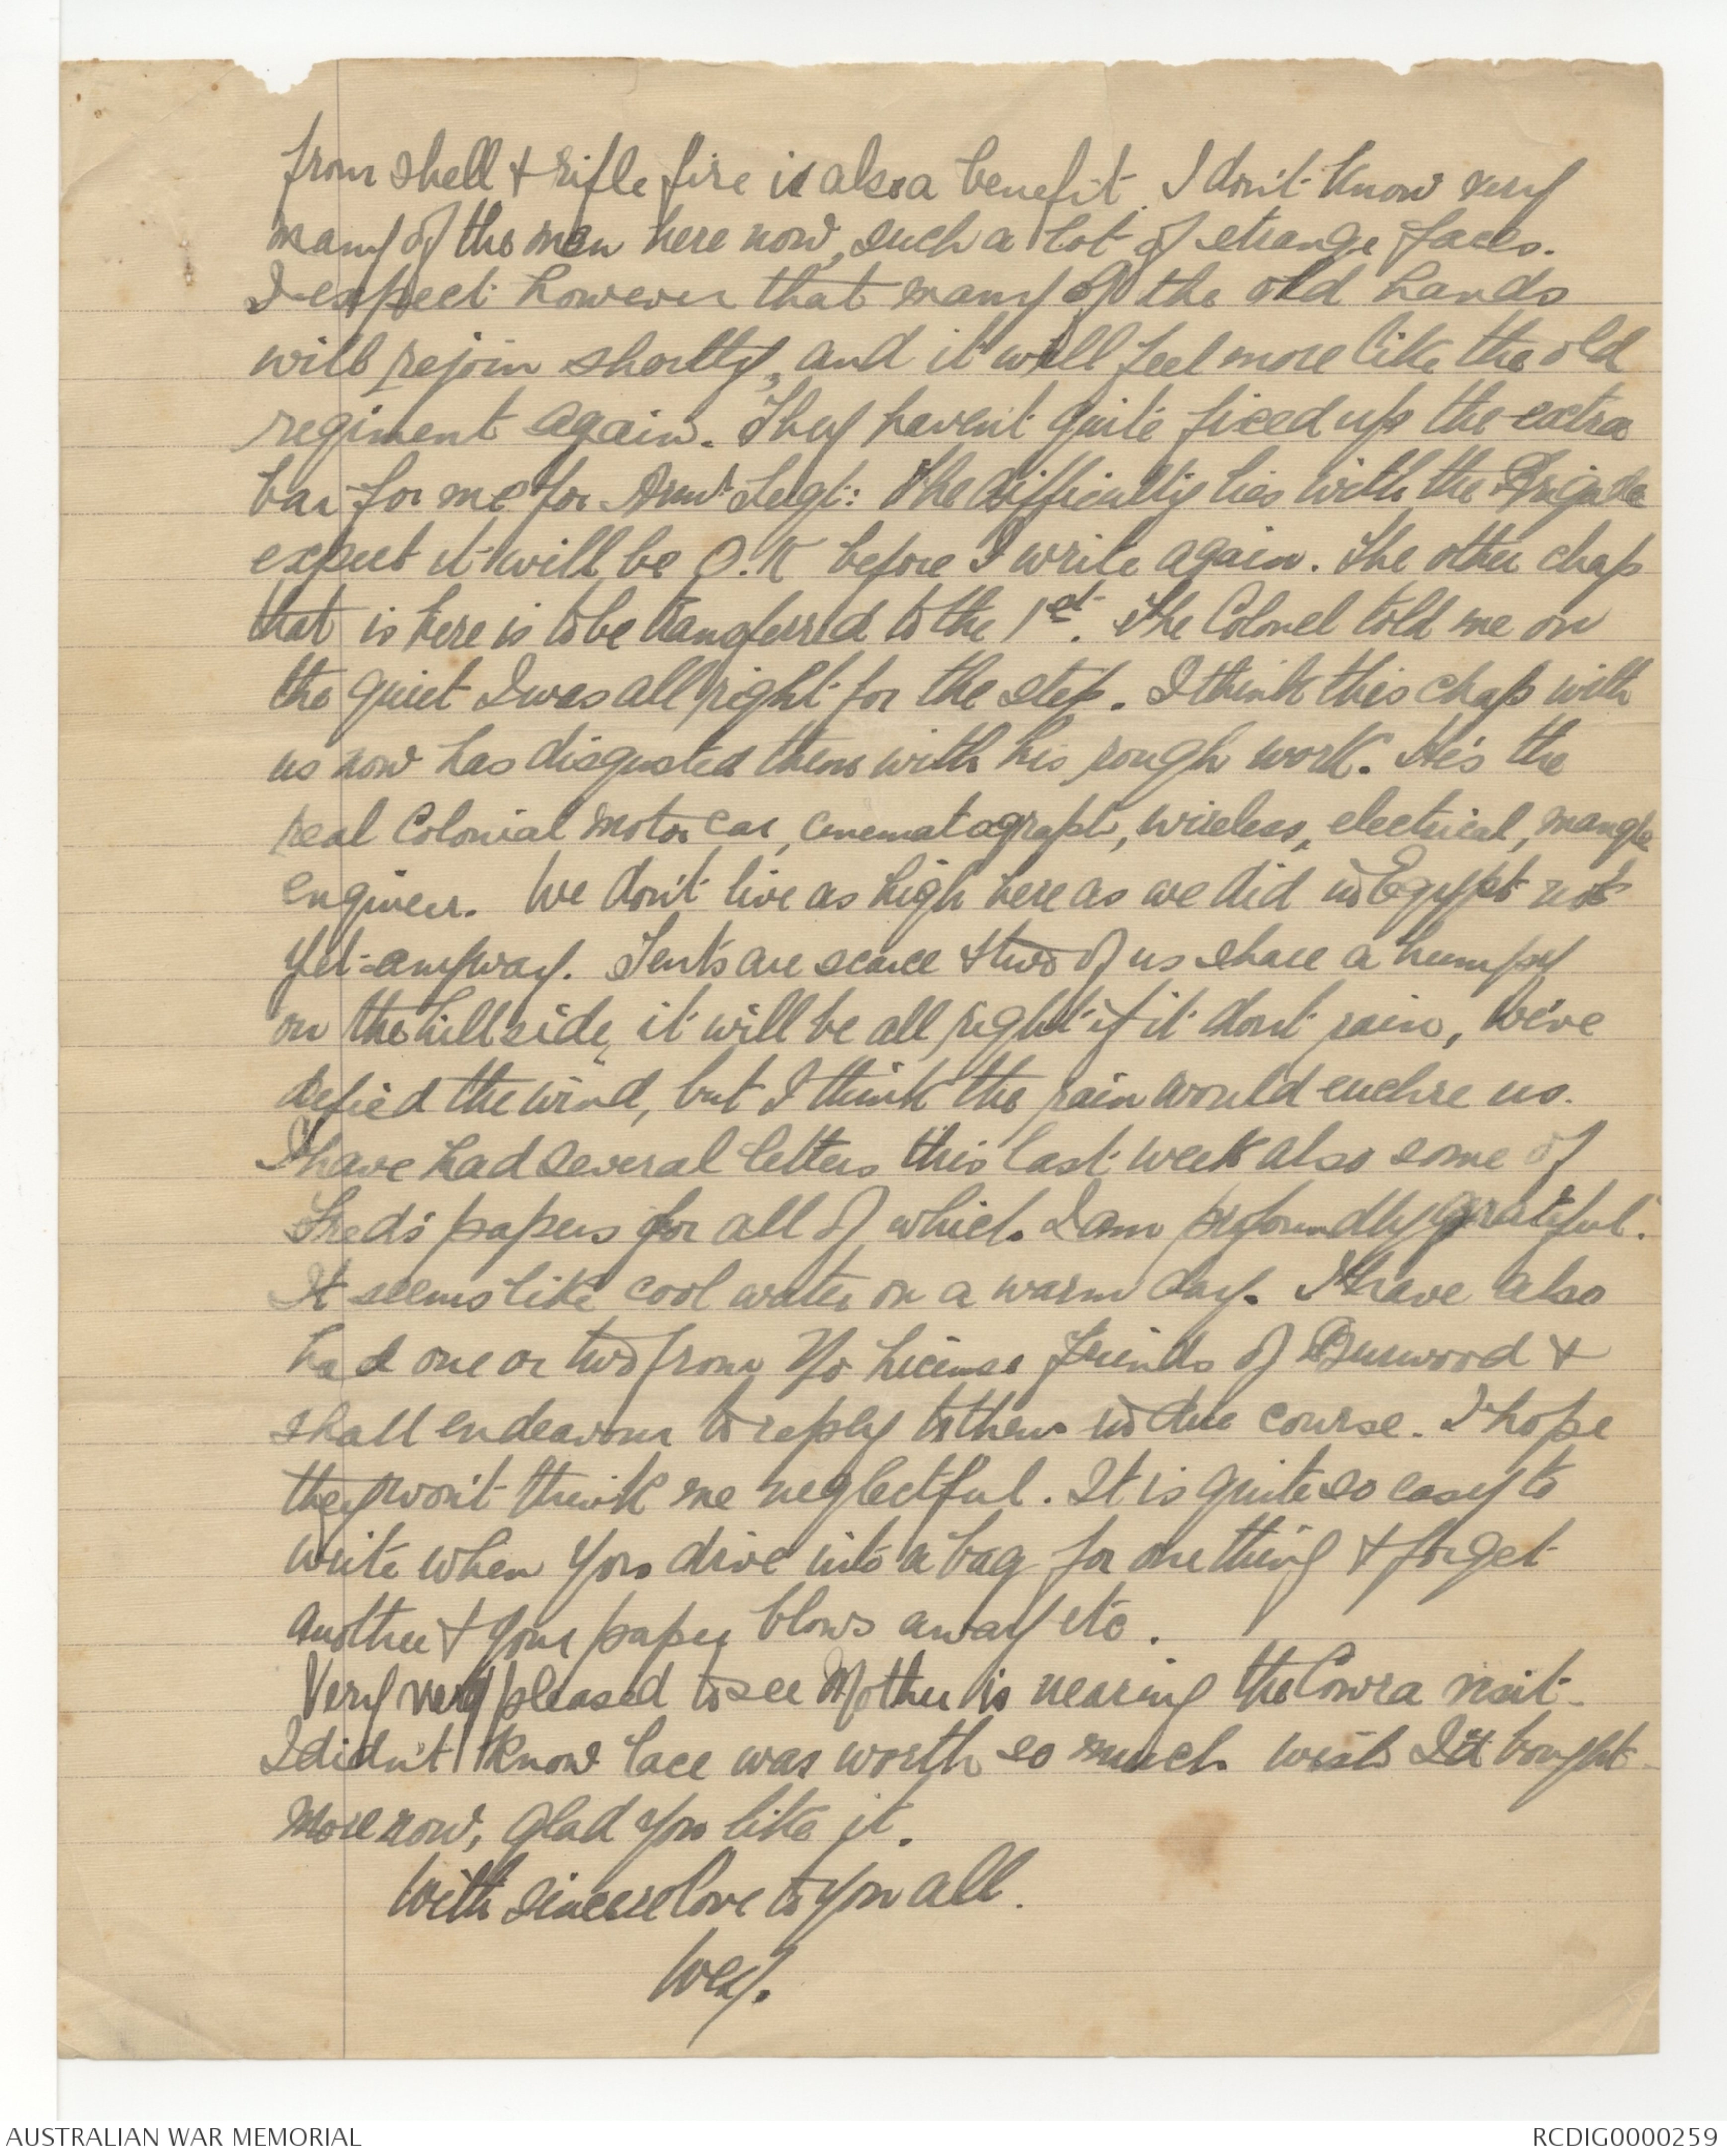 from shell & rifle fire is also a benefit. I don't know very
many of the men here now, such a lot of strange faces.
I expect however that many of the old hands
will rejoin shortly, and it will feel more like the old
regiment again. They haven't quite fixed up the extra
bar for me for Armt Sergt: The difficulty lies with the Brigade
expect it will be O.K before I write again. The other chap
that is here is to be transferred to the 1st. The Colonel told me on
the quiet I was all right for the step. I think this chap with
us now has disgusted them with his rough work. He's the
real Colonial motor car, cinematograph, wireless, electrical, mangle
engineer. We don't live as high here as we did in Egypt not
yet-anyway. Tents are scarce & two of us share a humpy
on the hillside, it will be all right if it dont rain, We've
defied the wind, but I think the rain would euchre us.
I have had several letters this last week also some of
Fred's papers for all of which I am profoundly grateful.
It seems like cool water on a warm day. I have also
had one or two from No License friends of Burwood &
shall endeavour to reply to them in due course. I hope
they won't think me neglectful. It is quite so easy to
write when you dive into a bag for one thing & forget
another & your paper blows away etc.
Very very pleased to see Mother is nearing the Cowra visit-
I didn't know lace was worth so much wish I'd bought
more now, glad you like it.
With sincere love to you all.
Wey.
AUSTRALIAN WAR MEMORIAL
RCDIG0000259